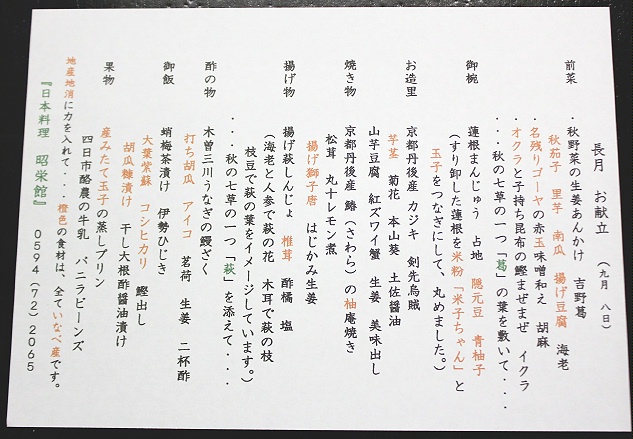 長月 お献立 (九月 八日)
前菜 ・秋野菜の生姜あんかけ 吉野葛
秋茄子 里芋 南瓜 揚げ豆腐 海老
・名残りゴーヤの赤玉味噌和え 胡麻
・オクラと子持ち昆布の鰹まぜまぜ イクラ
・・・秋の七草の一つ「葛」の葉を敷いて・・・・
御椀 蓮根まんじゅう 占地 隠元豆 青柚子
(すり卸した蓮根を米粉「米子ちゃん」と
玉子をつなぎにして、丸めました。)
お造里 京都丹後産 カジキ 剣先烏賊
芋茎 菊花 本山葵 土佐醤油
山芋豆腐 紅ズワイ蟹 生姜 美味出し
焼き物 京都丹後産 鰆(さわら)の柚庵焼き
松茸 丸十レモン煮
揚げ獅子唐 はじかみ生姜
揚げ物 揚げ萩しんじょ 椎茸 酢橘 塩
(海老と人参で萩の花 木耳で萩の枝
枝豆で萩の葉をイメージしています。)
・・・秋の七草の一つ「萩」を添えて・・・・
酢の物 木曽三川うなぎの鰻ざく
打ち胡瓜 アイコ 茗荷 生姜 二杯酢
御飯 蛸梅茶漬け 伊勢ひじき
大葉紫蘇 コシヒカリ 鰹出し
胡瓜糠漬け 干し大根酢醤油漬け
果物 産みたて玉子の蒸しプリン
四日市酪農の牛乳 バニラビーンズ
地産地消に力を入れて・・・・橙色の食材は、全ていなべ産です。
『日本料理 昭栄館』 0594(72)2065